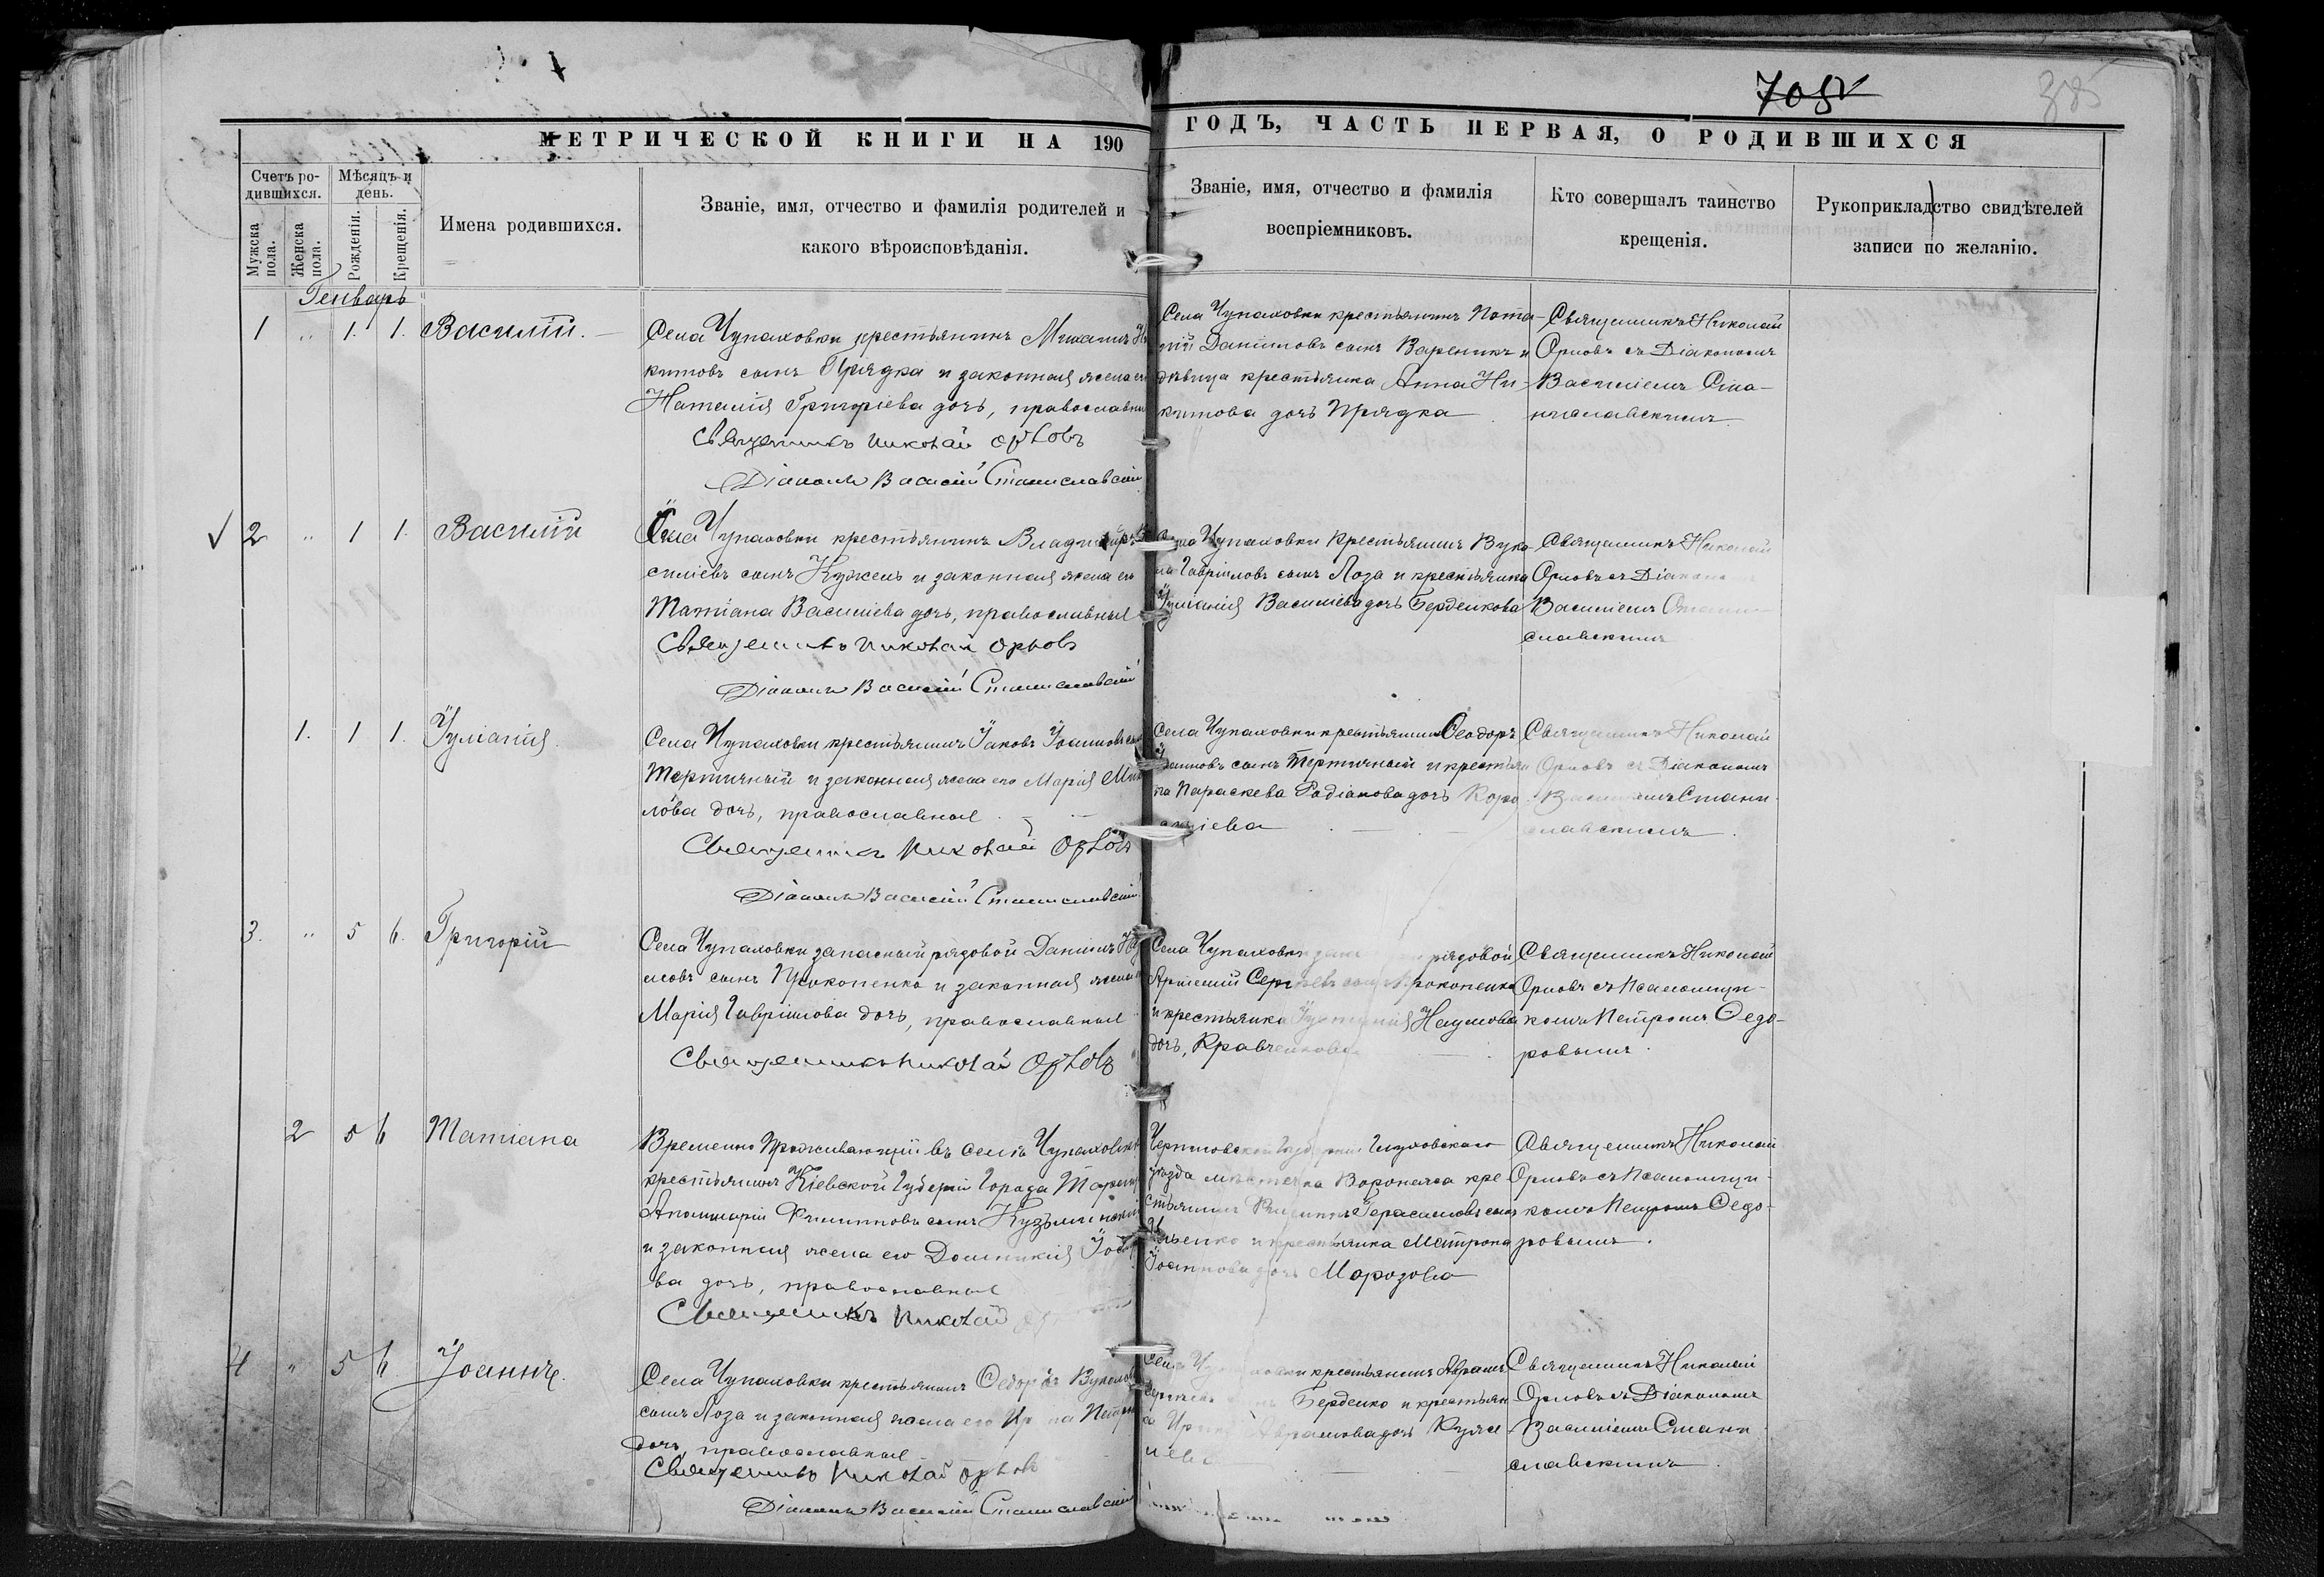 708
385
МЕТРИЧЕСКОЙ КНИГИ НА 190
ГОДЪ, ЧАСТЬ ПЕРВАЯ, О РОДИВШИХСЯ
Счетъ ро-
дившихся.
Мѣсяцъ и
день.
Мужска
пола.
Женска
пола.
Рожденія.
Крещенія.
Имена родившихся.
Званіе, имя, отчество и фамилія родителей и
какого вѣроисповѣданія.
Званіе, имя, отчество и фамилія
воспріемниковъ.
Кто совершалъ таинство
крещенія.
Рукоприкладство свидѣтелей
записи по желанію.
Генварь
1 " 1. 1. Василій.
Села Чупаховки крестьянинъ Михаилъ Ни
китовъ сынъ Прядка и законная жена его
Наталія Григоріева дочь, православные
Священникъ Николай Орловъ
Діаконъ Василій Станиславскій
Села Чупаховки крестьянинъ
Даніиловъ сынъ Вареникъ и
дѣвица крестьянка Анна Ни-
китова дочь Прядка
Священникъ Николай
Орловъ съ Діакономъ
Василіемъ Ста-
ниславскимъ.
2 " 1 1. Василій
Села Чупаховки крестьянинъ Владиміръ Ва
силіевъ сынъ Кужель и законная жена его
Татіана Василіева дочь, православные
Священникъ Николай Орловъ
Діаконъ Василій Станиславскій
Села Чупаховки крестьянинъ Вуко
ла Гавріиловъ сынъ Лоза и крестьянка
Іуліанія Василіева дочь Берденкова
Священникъ Николай
Орловъ съ Діакономъ
Василіемъ Стани-
славскимъ
1. 1 1. Іуліанія.
Села Чупаховки крестьянинъ Іаковъ Іоанновъ сынъ
Тертичный и законная жена его Марія
лова дочь, православные
Священникъ Николай Орловъ
Діаконъ Василій Станиславскій
Села Чупаховки крестьянинъ Ѳеодоръ
Іоанновъ сынъ Тертичный и крестьян
ка Параскева Родіонова дочь
Священникъ Николай
Орловъ съ Діакономъ
Василіемъ Стани-
славскимъ.
3. " 5 6. Григорій
Села Чупаховки запасный рядовой Даніилъ
сынъ Прокопенко и законная жена
Марія Гавріилова дочь, православные
Священникъ Николай Орловъ
Села Чупаховки рядовой
Сергіевъ сынъ Прокопенко
и крестьянка Наумова
дочь, Кравченкова
Священникъ Николай
Орловъ съ Псаломщи-
комъ Петромъ Ѳедо-
ровымъ.
2 5 6 Татіана
Временно проживающій въ селѣ Чупаховкѣ
крестьянинъ Кіевской Губерніи города
Аполинарій Филипповъ сынъ Кузьминскій
и законная жена его Домникія
ва дочь, православные
Священникъ Николай
Черниговской губерніи Глуховскаго
уѣзда мѣстечка Воронежа кре
стьянинъ Филиппъ Герасимовъ сынъ
и крестьянка Матрона
Іоаннова дочь Марозова
Священникъ Николай
Орловъ съ Псаломщи-
комъ Петромъ Ѳедо-
ровымъ.
4 " 5 6 Іоаннъ.
Села Чупаховки крестьянинъ Ѳеодоръ Вуколовъ
сынъ Лоза и законная жена его Ирина Петрова
дочь, православные
Священникъ Николай Орловъ
Діаконъ Василій Станиславскій
Села Чупаховки крестьянинъ Аврамъ
Берденко и крестьян
ка Ирина Аврамова дочь
Священникъ Николай
Орловъ съ Діакономъ
Василіемъ Стани
славскимъ